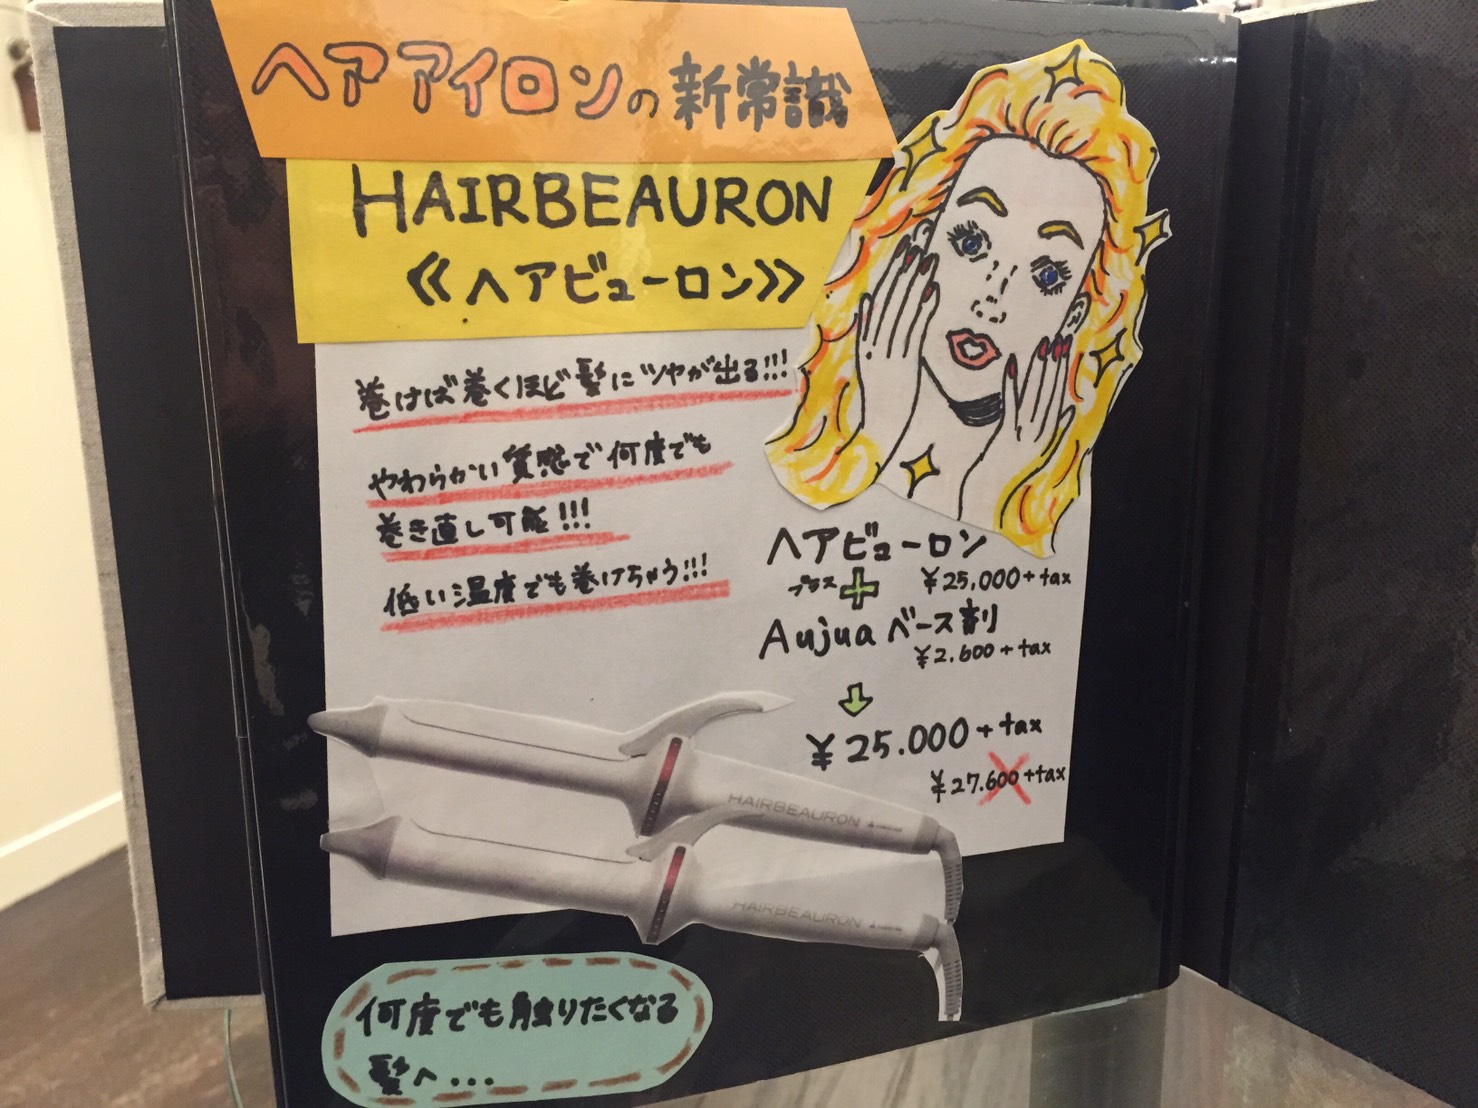 ヘアアイロンの新常識
HAIRBEAURON
《ヘアビューロン》
巻けば巻くほど髪にツヤが出る!!!
やわらかい質感で何度でも
巻き直し可能!!!
低い温度でも巻けちゃう!!!
ヘアビューロン
¥25,000+tax
プラス
Aujuaベース剤
¥2.600+tax
¥25.000+tax
¥27.600+tax
HAIRBEAURON
HAIRBEAURON
何度でも触りたくなる
髪へ...